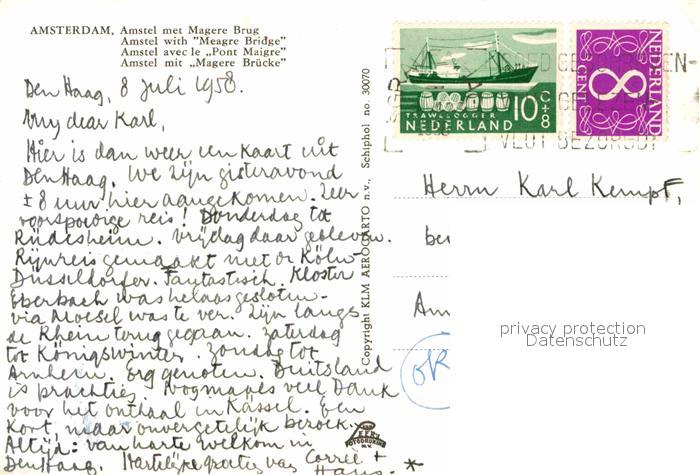 AMSTERDAM, Amstel met Magere Brug
Amstel with "Meagre Bridge"
Amstel avec le „Pont Maigre"
Amstel mit „Magere Brücke"
Den Haag, 8 Juli 1958.
My dear Karl,
Hier is dan weer een kaart uit
Den Haag. We zijn gisteravond
± 8 uur hier aangekomen. Zeer
voorspoedige reis! Donderdag tot
Rüdesheim. Vrijdag daar gebleven.
Rijnreis gemaakt met de Köln-
Düsseldorfer. Fantastisch. Kloster
Eberbach was helaas gesloten.
via Moesel was te ver. Zijn langs
de Rhein teruggegaan. Zaterdag
tot Königswinter. Zondag tot
Arnhem. Erg genoten. Duitsland
is prachtig. Nogmaals veel Dank
voor het onthaal in Kassel. Een
kort, maar onvergetelijk bezoek.
Altijd: van harte welkom in
Den Haag. Hartelijke groetjes van Correl +
Hans.
Copyright KLM AEROCARTO n.v., Schiphol no. 30070
FOTODRUKKERIJ
N.V.
10 C+8
TRAWLLOGGER
NEDERLAND
NEDERLAND
8
CENT
VLOT BEZORGD
Herrn Karl Kempf,
be
Am
OK
privacy protection
Datenschutz